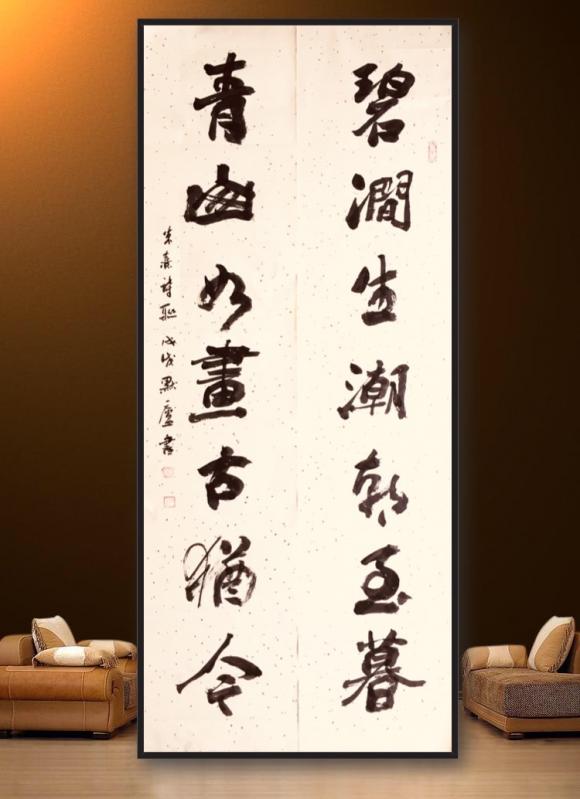 碧澗生潮朝至暮
青山如畫古猶今
朱熹詩聯 戊戌墨廬書